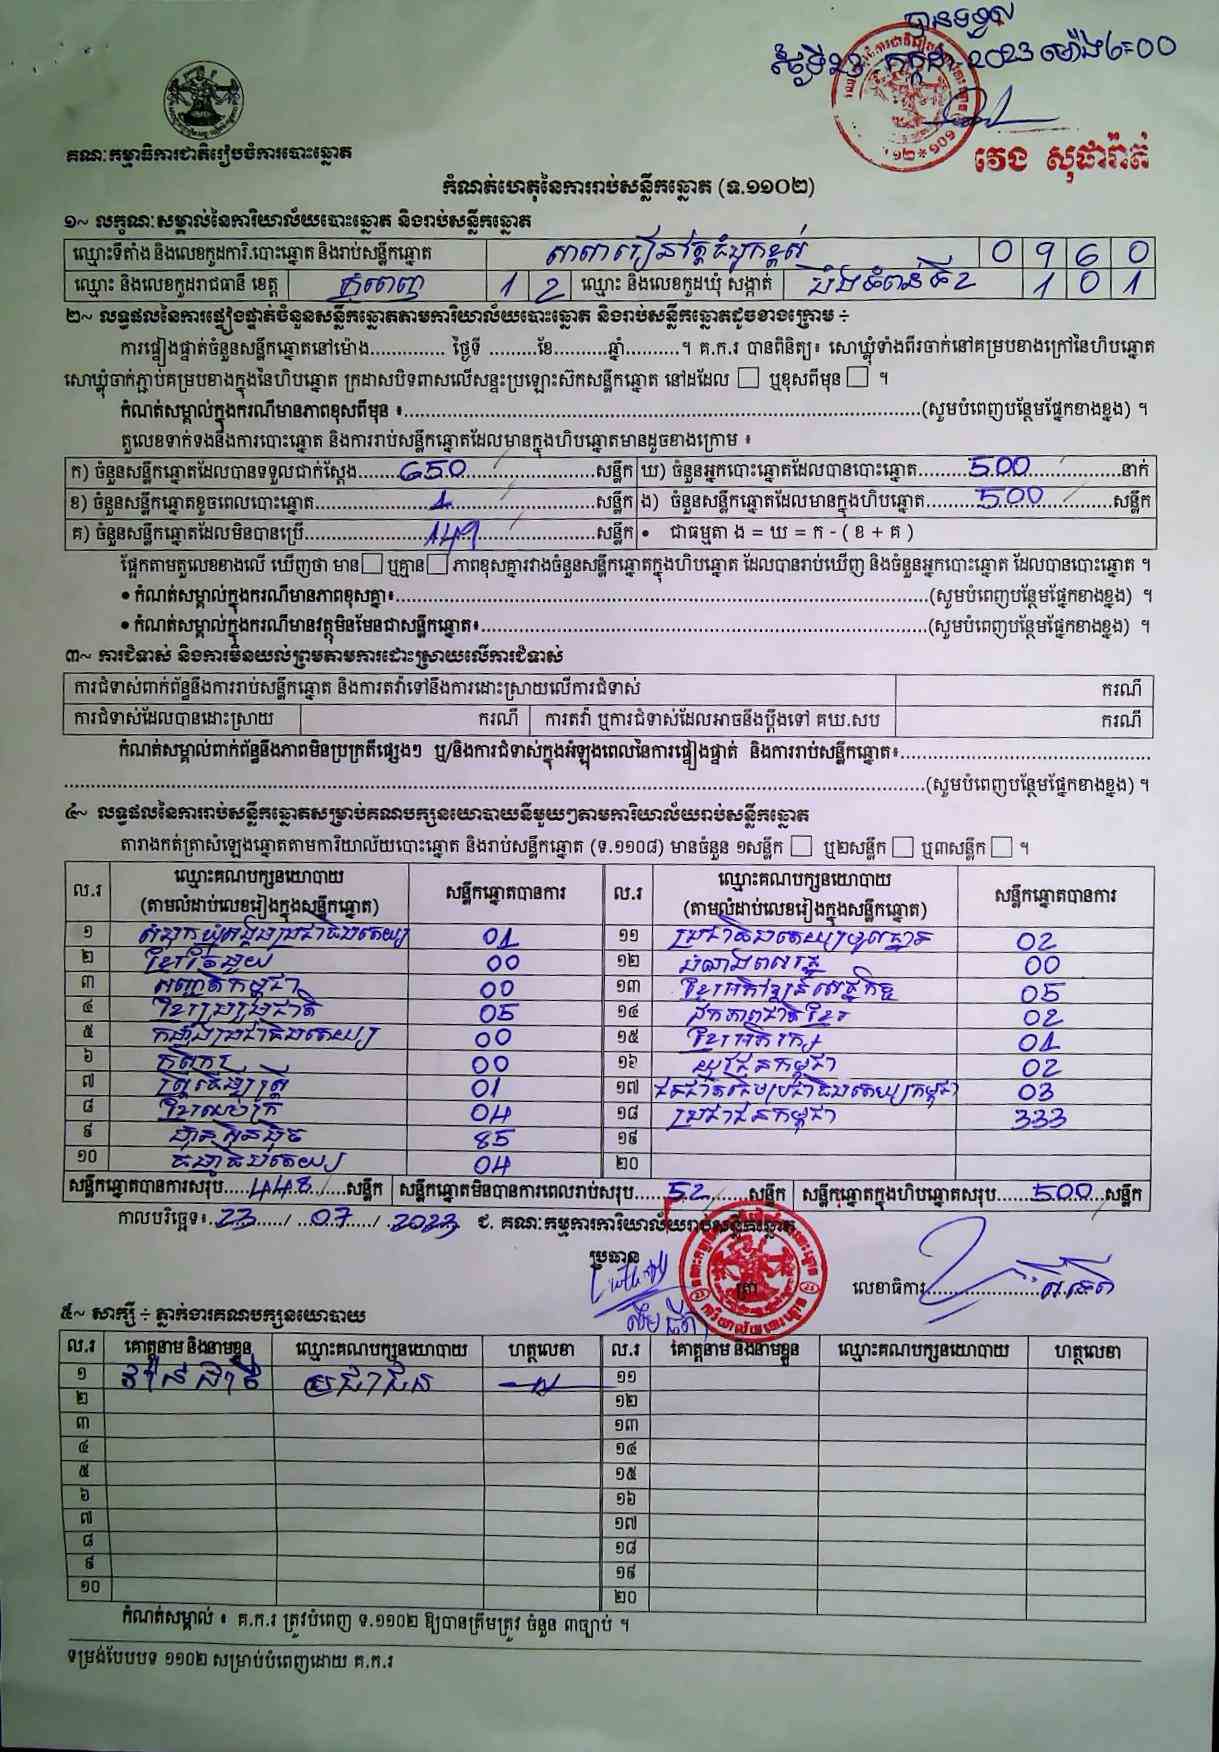 បានទទួល
ថ្ងៃទី២៣ កក្កដា 2023 ម៉ោង 6:00
វេង សុផារ៉ាត់
គណៈកម្មាធិការជាតិរៀបចំការបោះឆ្នោត
កំណត់ហេតុនៃការរាប់សន្លឹកឆ្នោត (ទ.១១០២)
១~ លក្ខណៈសម្គាល់នៃការិយាល័យបោះឆ្នោត និងរាប់សន្លឹកឆ្នោត
ឈ្មោះទីតាំង និងលេខកូដការិ.បោះឆ្នោត និងរាប់សន្លឹកឆ្នោត សាលារៀនវត្តជំពូកខ្ពស់ 0 9 6 0
ឈ្មោះ និងលេខកូដរាជធានី ខេត្ត ភ្នំពេញ 1 2 ឈ្មោះ និងលេខកូដឃុំ សង្កាត់ បឹងទំពុនទី2 1 0 1
២~ លទ្ធផលនៃការផ្ទៀងផ្ទាត់ចំនួនសន្លឹកឆ្នោតតាមការិយាល័យបោះឆ្នោត និងរាប់សន្លឹកឆ្នោតដូចខាងក្រោម ÷
ការផ្ទៀងផ្ទាត់ចំនួនសន្លឹកឆ្នោតនៅម៉ោង.............. ថ្ងៃទី .........ខែ..........ឆ្នាំ..........។ គ.ក.រ បានពិនិត្យ៖ សោឃ្លុំទាំងពីរចាក់នៅគម្របខាងក្រៅនៃហិបឆ្នោត
សោឃ្លុំចាក់ភ្ជាប់គម្របខាងក្នុងនៃហិបឆ្នោត ក្រដាសបិទពាសលើសន្ទះប្រឡោះស៊កសន្លឹកឆ្នោត នៅដដែល □ ឬខុសពីមុន □ ។
កំណត់សម្គាល់ក្នុងករណីមានភាពខុសពីមុន ៖..........(សូមបំពេញបន្ថែមផ្នែកខាងខ្នង) ។
តួលេខទាក់ទងនឹងការបោះឆ្នោត និងការរាប់សន្លឹកឆ្នោតដែលមានក្នុងហិបឆ្នោតមានដូចខាងក្រោម ៖
ក) ចំនួនសន្លឹកឆ្នោតដែលបានទទួលជាក់ស្តែង......650......សន្លឹក ឃ) ចំនួនអ្នកបោះឆ្នោតដែលបានបោះឆ្នោត......500......នាក់
ខ) ចំនួនសន្លឹកឆ្នោតខូចពេលបោះឆ្នោត......1......សន្លឹក ង) ចំនួនសន្លឹកឆ្នោតដែលមានក្នុងហិបឆ្នោត......500......សន្លឹក
គ) ចំនួនសន្លឹកឆ្នោតដែលមិនបានប្រើ......149......សន្លឹក • ជាធម្មតា ង = ឃ = ក - ( ខ + គ )
ផ្អែកតាមតួលេខខាងលើ ឃើញថា មាន □ ឬគ្មាន □ ភាពខុសគ្នារវាងចំនួនសន្លឹកឆ្នោតក្នុងហិបឆ្នោត ដែលបានរាប់ឃើញ និងចំនួនអ្នកបោះឆ្នោត ដែលបានបោះឆ្នោត ។
• កំណត់សម្គាល់ក្នុងករណីមានភាពខុសគ្នា៖..........(សូមបំពេញបន្ថែមផ្នែកខាងខ្នង) ។
• កំណត់សម្គាល់ក្នុងករណីមានវត្ថុមិនមែនជាសន្លឹកឆ្នោត៖..........(សូមបំពេញបន្ថែមផ្នែកខាងខ្នង) ។
៣~ ការជំទាស់ និងការមិនយល់ព្រមតាមការដោះស្រាយលើការជំទាស់
ការជំទាស់ពាក់ព័ន្ធនឹងការរាប់សន្លឹកឆ្នោត និងការតវ៉ាទៅនឹងការដោះស្រាយលើការជំទាស់ ករណី
ការជំទាស់ដែលបានដោះស្រាយ ករណី ការតវ៉ា ឬការជំទាស់ដែលអាចនឹងប្តឹងទៅ គឃ.សប ករណី
កំណត់សម្គាល់ពាក់ព័ន្ធនឹងភាពមិនប្រក្រតីផ្សេងៗ ឬ/និងការជំទាស់ក្នុងអំឡុងពេលនៃការផ្ទៀងផ្ទាត់ និងការរាប់សន្លឹកឆ្នោត៖..........
..........(សូមបំពេញបន្ថែមផ្នែកខាងខ្នង) ។
៤~ លទ្ធផលនៃការរាប់សន្លឹកឆ្នោតសម្រាប់គណបក្សនយោបាយនីមួយៗតាមការិយាល័យរាប់សន្លឹកឆ្នោត
តារាងកត់ត្រាសំឡេងឆ្នោតតាមការិយាល័យបោះឆ្នោត និងរាប់សន្លឹកឆ្នោត (ទ.១១០៨) មានចំនួន ១សន្លឹក □ ឬ២សន្លឹក □ ឬ៣សន្លឹក □ ។
ល.រ ឈ្មោះគណបក្សនយោបាយ សន្លឹកឆ្នោតបានការ ល.រ ឈ្មោះគណបក្សនយោបាយ សន្លឹកឆ្នោតបានការ
(តាមលំដាប់លេខរៀងក្នុងសន្លឹកឆ្នោត) (តាមលំដាប់លេខរៀងក្នុងសន្លឹកឆ្នោត)
១ សំបុកឃ្មុំសង្គមប្រជាធិបតេយ្យ 01 ១១ ប្រជាធិបតេយ្យមូលដ្ឋាន 02
២ ខ្មែរតែមួយ 00 ១២ 00
៣ សញ្ជាតិកម្ពុជា 00 ១៣ ខ្មែរអភិវឌ្ឍន៍សេដ្ឋកិច្ច 05
៤ ខ្មែររួបរួមជាតិ 05 ១៤ ឯកភាពជាតិខ្មែរ 02
៥ កម្លាំងប្រជាធិបតេយ្យ 00 ១៥ ខ្មែរអភិរក្ស 01
៦ កសិករ 00 ១៦ យុវជនកម្ពុជា 02
៧ ស្ត្រីដើម្បីស្ត្រី 01 ១៧ ជនជាតិដើមប្រជាធិបតេយ្យកម្ពុជា 03
៨ 04 ១៨ ប្រជាជនកម្ពុជា 333
៩ ហ៊្វុនស៊ិនប៉ិច 85 ១៩
១០ ធម្មាធិបតេយ្យ 04 ២០
សន្លឹកឆ្នោតបានការសរុប.....448......សន្លឹក សន្លឹកឆ្នោតមិនបានការពេលរាប់សរុប......52......សន្លឹក សន្លឹកឆ្នោតក្នុងហិបឆ្នោតសរុប......500......សន្លឹក
កាលបរិច្ឆេទ៖ 23 / 07 / 2023 ជ. គណៈកម្មការការិយាល័យរាប់សន្លឹកឆ្នោត
ប្រធាន
ត្រា
លេខាធិការ
៥~ សាក្សី ÷ ភ្នាក់ងារគណបក្សនយោបាយ
ល.រ គោត្តនាម និងនាមខ្លួន ឈ្មោះគណបក្សនយោបាយ ហត្ថលេខា ល.រ គោត្តនាម និងនាមខ្លួន ឈ្មោះគណបក្សនយោបាយ ហត្ថលេខា
១ ប្រជាជន ១១
២ ១២
៣ ១៣
៤ ១៤
៥ ១៥
៦ ១៦
៧ ១៧
៨ ១៨
៩ ១៩
១០ ២០
កំណត់សម្គាល់ ៖ គ.ក.រ ត្រូវបំពេញ ទ.១១០២ ឱ្យបានត្រឹមត្រូវ ចំនួន ៣ច្បាប់ ។
ទម្រង់បែបបទ ១១០២ សម្រាប់បំពេញដោយ គ.ក.រ